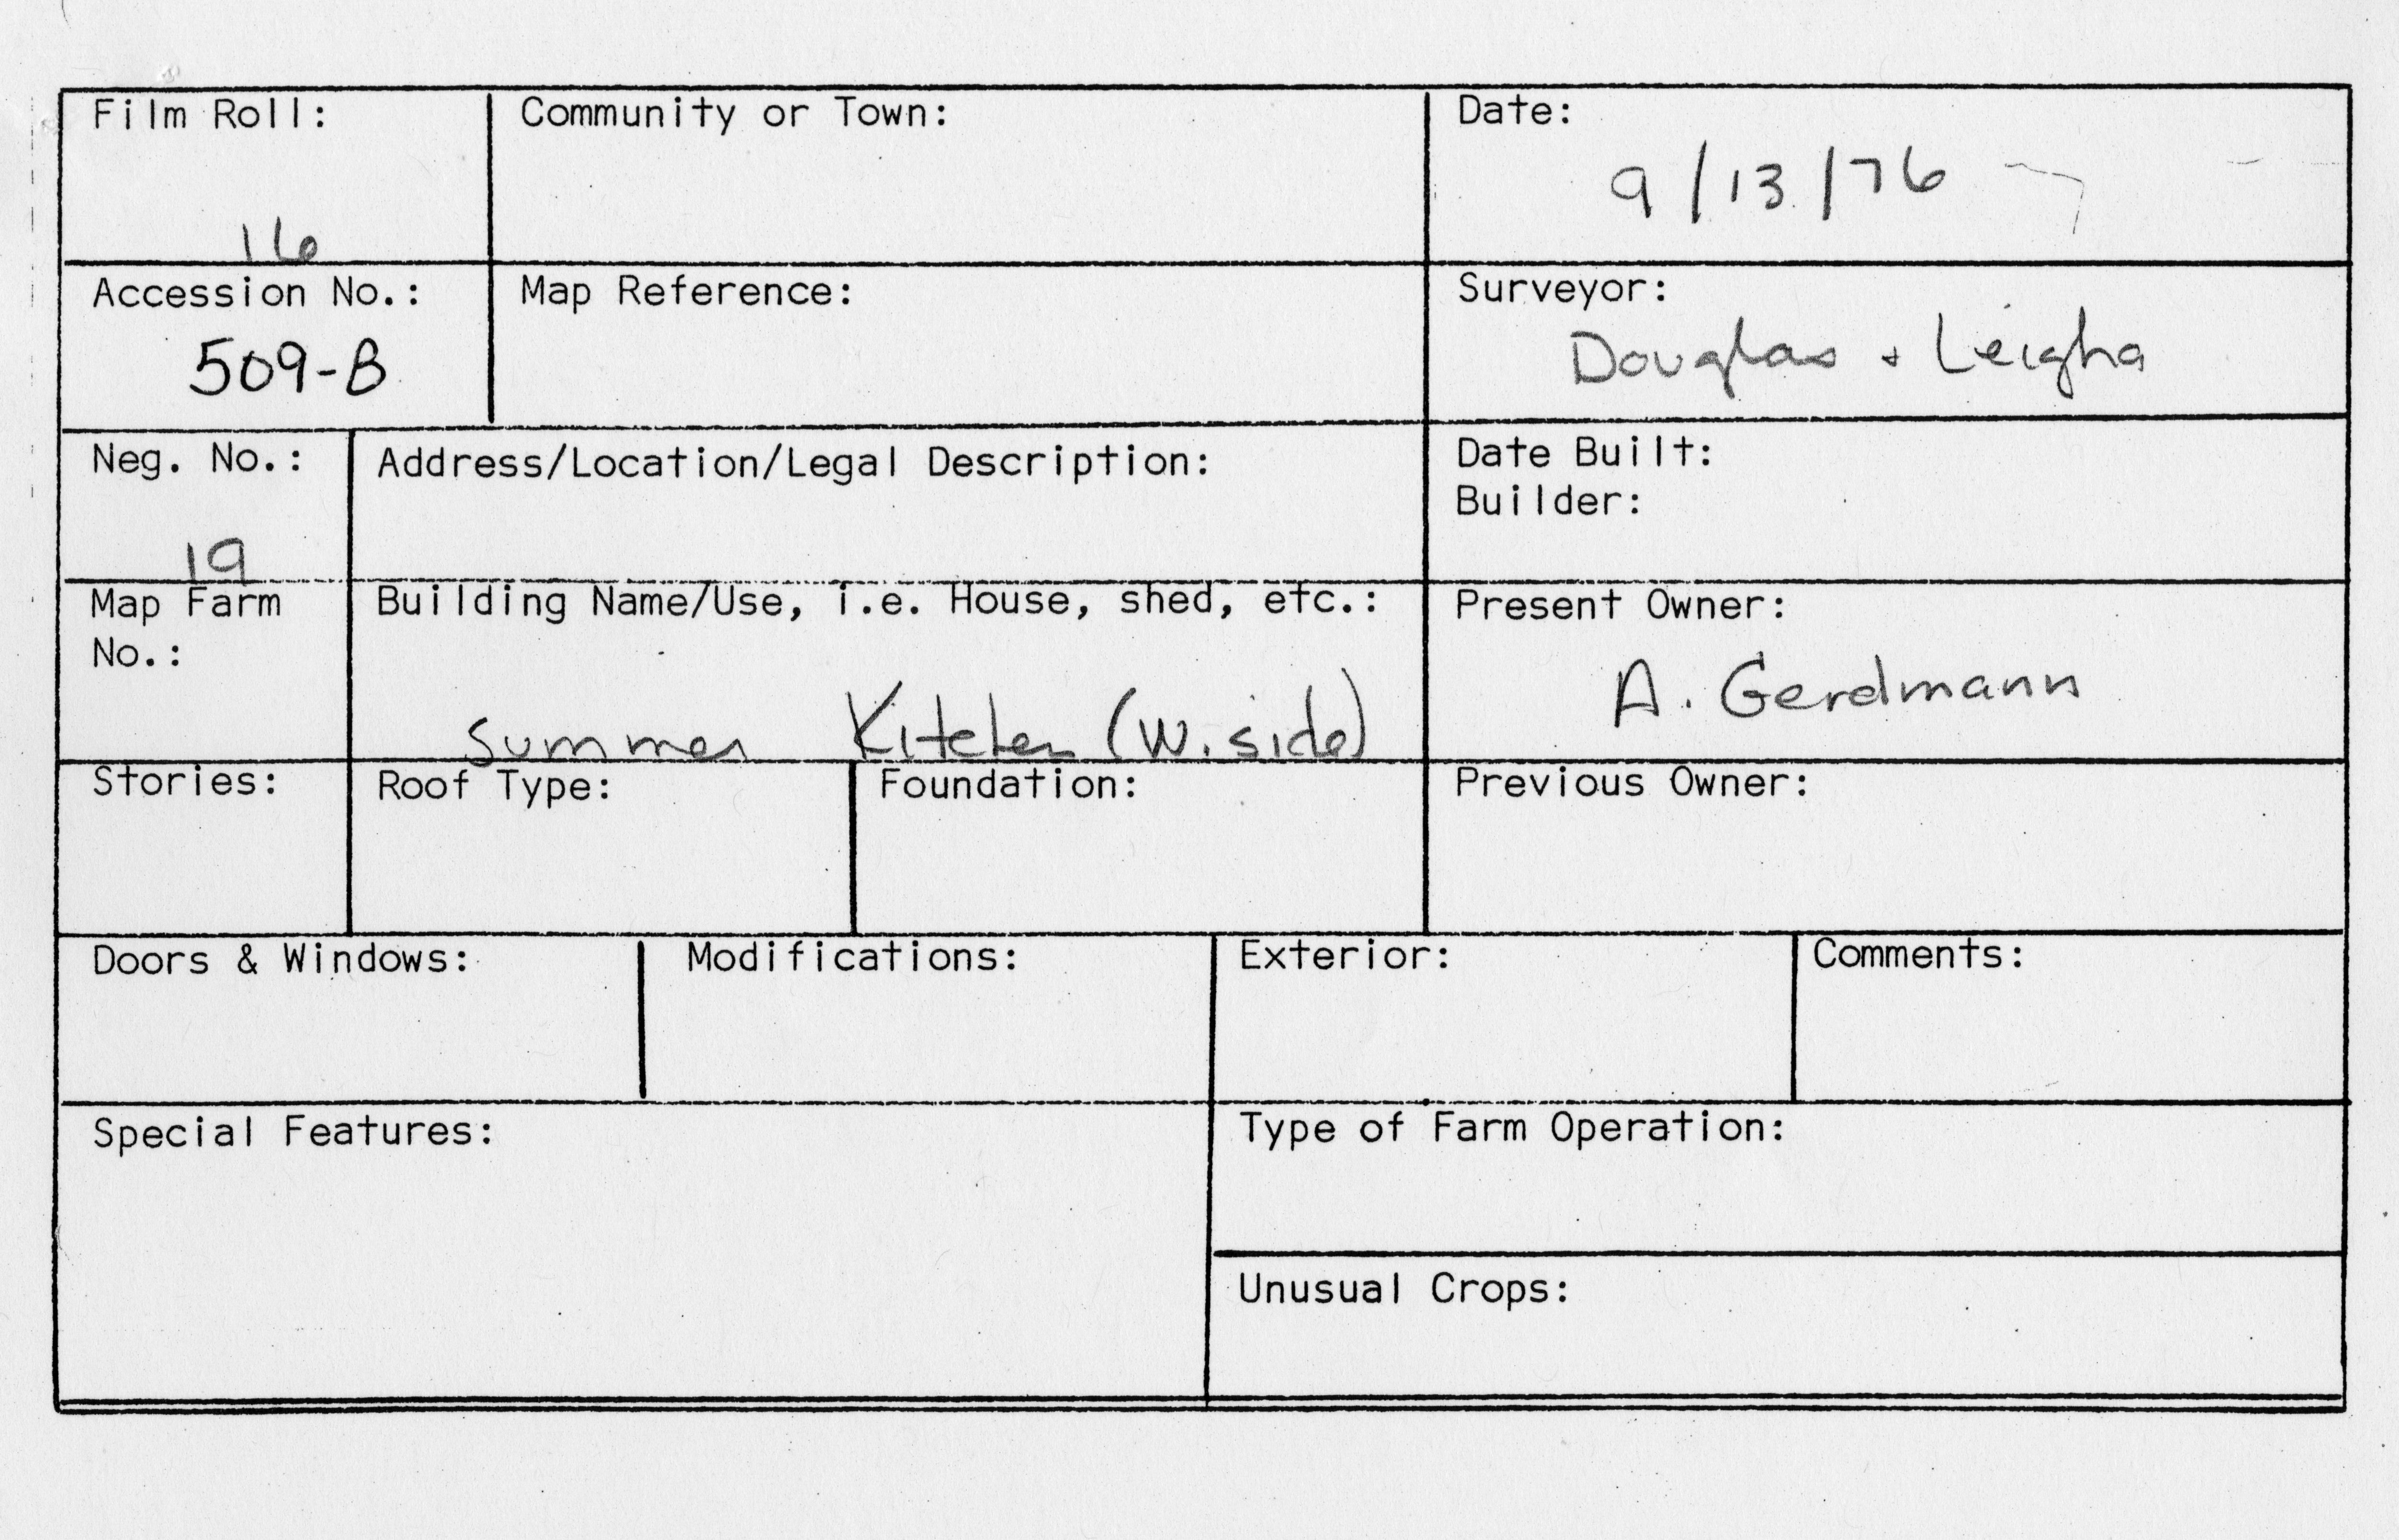 Film Roll:
16
Community or Town:
Date:
9/13/76
Accession No.:
509-B
Map Reference:
Surveyor:
Douglas + Leigha
Neg. No.:
19
Address/Location/Legal Description:
Date Built:
Builder:
Map Farm
No.:
Building Name/Use, i.e. House, shed, etc.:
Summer Kitchen (W. side)
Present Owner:
A. Gerdmann
Stories:
Roof Type:
Foundation:
Previous Owner:
Doors & Windows:
Modifications:
Exterior:
Comments:
Special Features:
Type of Farm Operation:
Unusual Crops: